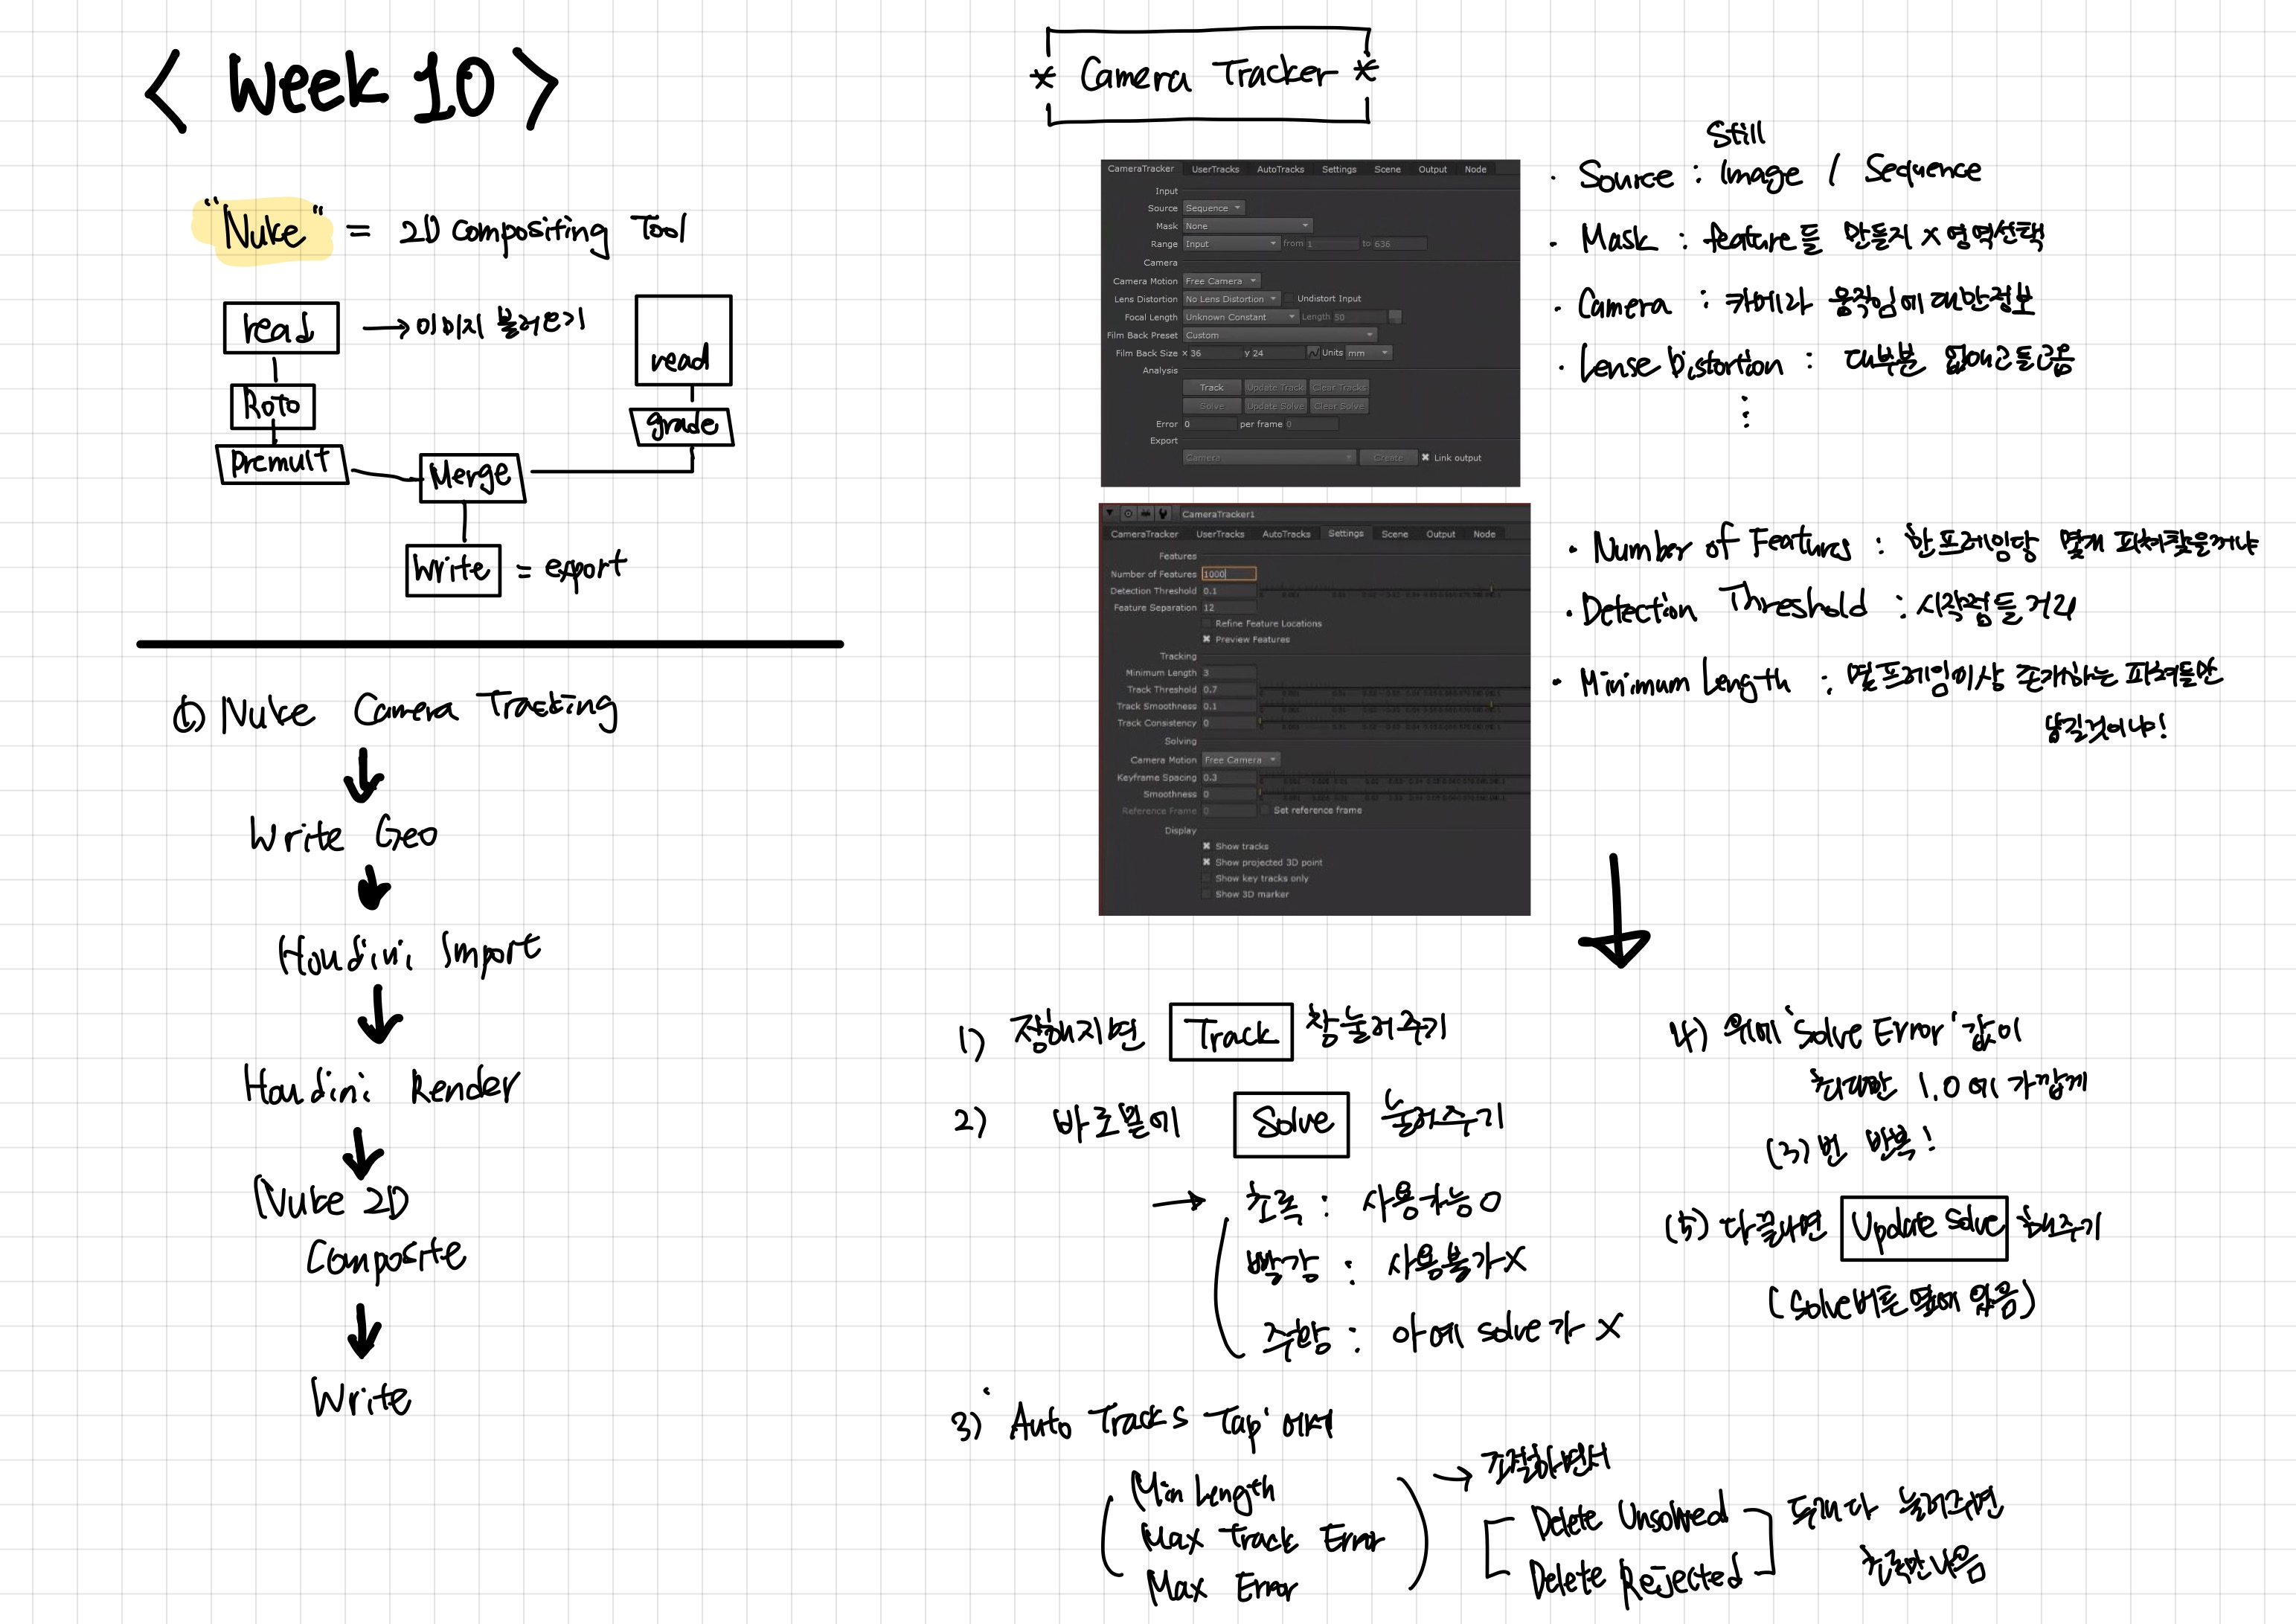 < Week 10 >
"Nuke" = 2D Compositing Tool
read → 이미지 불러오기
Roto
Premult
read
grade
Merge
Write = export
Nuke Camera Tracking
Write Geo
Houdini Import
Houdini Render
Nuke 2D
Composite
Write
* Camera Tracker *
CameraTracker UserTracks AutoTracks Settings Scene Output Node
Input
Source Sequence
Mask None
Range Input from 1 to 636
Camera
Camera Motion Free Camera
Lens Distortion No Lens Distortion Undistort Input
Focal Length Unknown Constant Length 50
Film Back Preset Custom
Film Back Size x 36 y 24 Units mm
Analysis
Track Update Track Clear Tracks
Solve Update Solve Clear Solve
Error 0 per frame 0
Export
Camera Create Link output
Still
· Source : Image / Sequence
· Mask : feature들 만들지 x 영역선택
· Camera : 카메라 움직임에 대한정보
· Lense Distortion : 대부분 없애고들어옴
CameraTracker1
CameraTracker UserTracks AutoTracks Settings Scene Output Node
Features
Number of Features 1000
Detection Threshold 0.1
Feature Separation 12
Refine Feature Locations
Preview Features
Tracking
Minimum Length 3
Track Threshold 0.7
Track Smoothness 0.1
Track Consistency 0
Solving
Camera Motion Free Camera
Keyframe Spacing 0.3
Smoothness 0
Reference Frame 0 Set reference frame
Display
Show tracks
Show projected 3D point
Show key tracks only
Show 3D marker
· Number of Features : 한프레임당 몇개 피쳐찾을꺼냐
· Detection Threshold : 시작점들 거리
· Minimum Length : 몇프레임이상 존재하는 피쳐들만
남길것이냐!
1) 정해지면 Track 창눌러주기
2) 바로밑에 Solve 눌러주기
→ 초록 : 사용가능 O
빨강 : 사용불가 X
주황 : 아예 solve가 X
3) 'Auto Tracks Tap' 에서
Min Length
Max Track Error
Max Error
→ 조절하면서
Delete Unsolved
Delete Rejected
두개다 눌러주면
초록만나옴
4) 위에 'Solve Error' 값이
최대한 1.0에 가깝게
(3)번 반복!
(5) 다끝나면 Update Solve 해주기
(Solve버튼 옆에 있음)